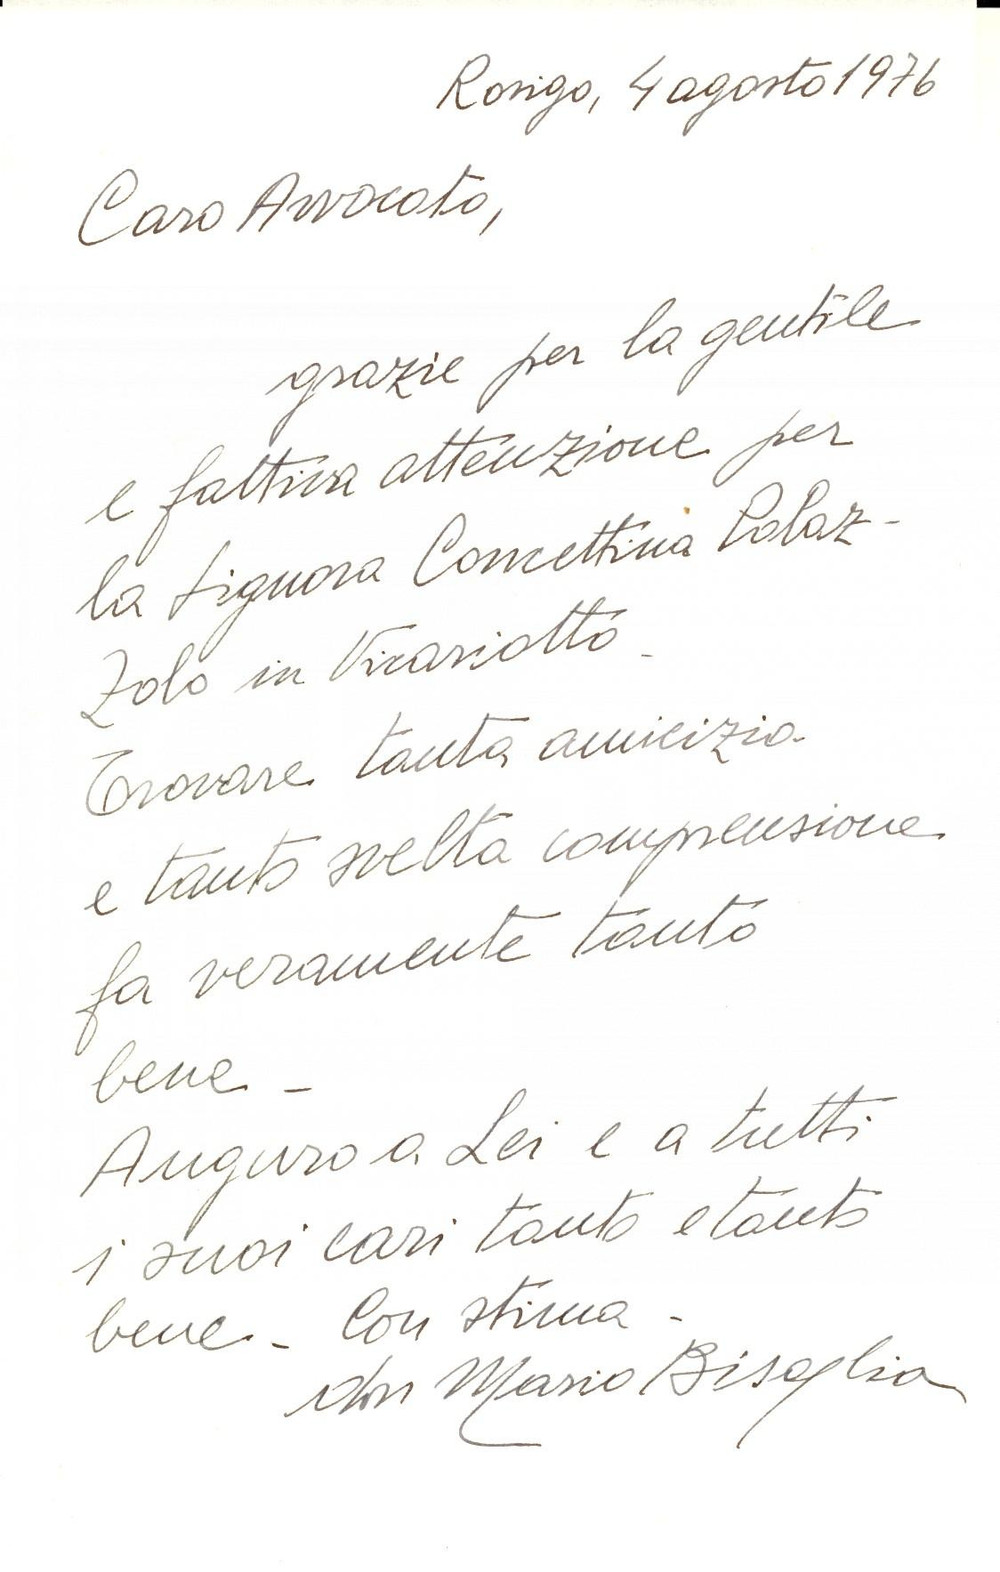 Rovigo, 4 agosto 1976
Caro Avvocato,
grazie per la gentile
e fattiva attenzione per
la Signora Concettina Palaz-
zolo in Vicariotto -
Trovare tanta amicizia
e tanta svelta comprensione
fa veramente tanto
bene -
Auguro a Lei e a tutti
i suoi cari tanto e tanto
bene - Con stima -
don Mario Bisaglia